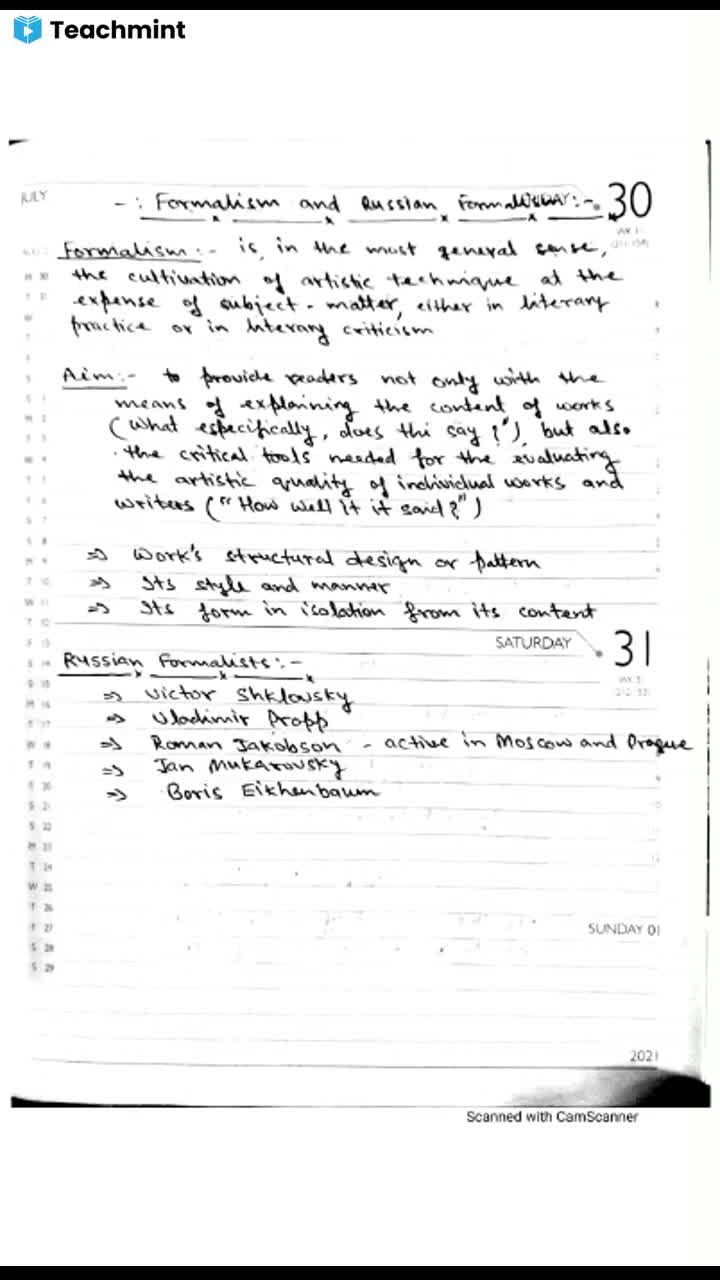 Teachmint
JULY
-: Formalism and Russian Formalism:-
30
Formalism:- is, in the most general sense,
the cultivation of artistic technique at the
expense of subject-matter, either in literary
practice or in literary criticism
Aim:- to provide readers not only with the
means of explaining the content of works
(What especifically, does thi say?"), but also
the critical tools needed for the evaluating
the artistic quality of individual works and
writers ("How well it it said?")
⇒ Work's structural design or pattern
⇒ Its style and manner
⇒ Its form in isolation from its content
SATURDAY 31
Russian Formalists:-
⇒ Victor Shklovsky
⇒ Vladimir Propp
⇒ Roman Jakobson - active in Moscow and Prague
⇒ Jan Mukarovsky
⇒ Boris Eikhenbaum
SUNDAY 01
2021
Scanned with CamScanner